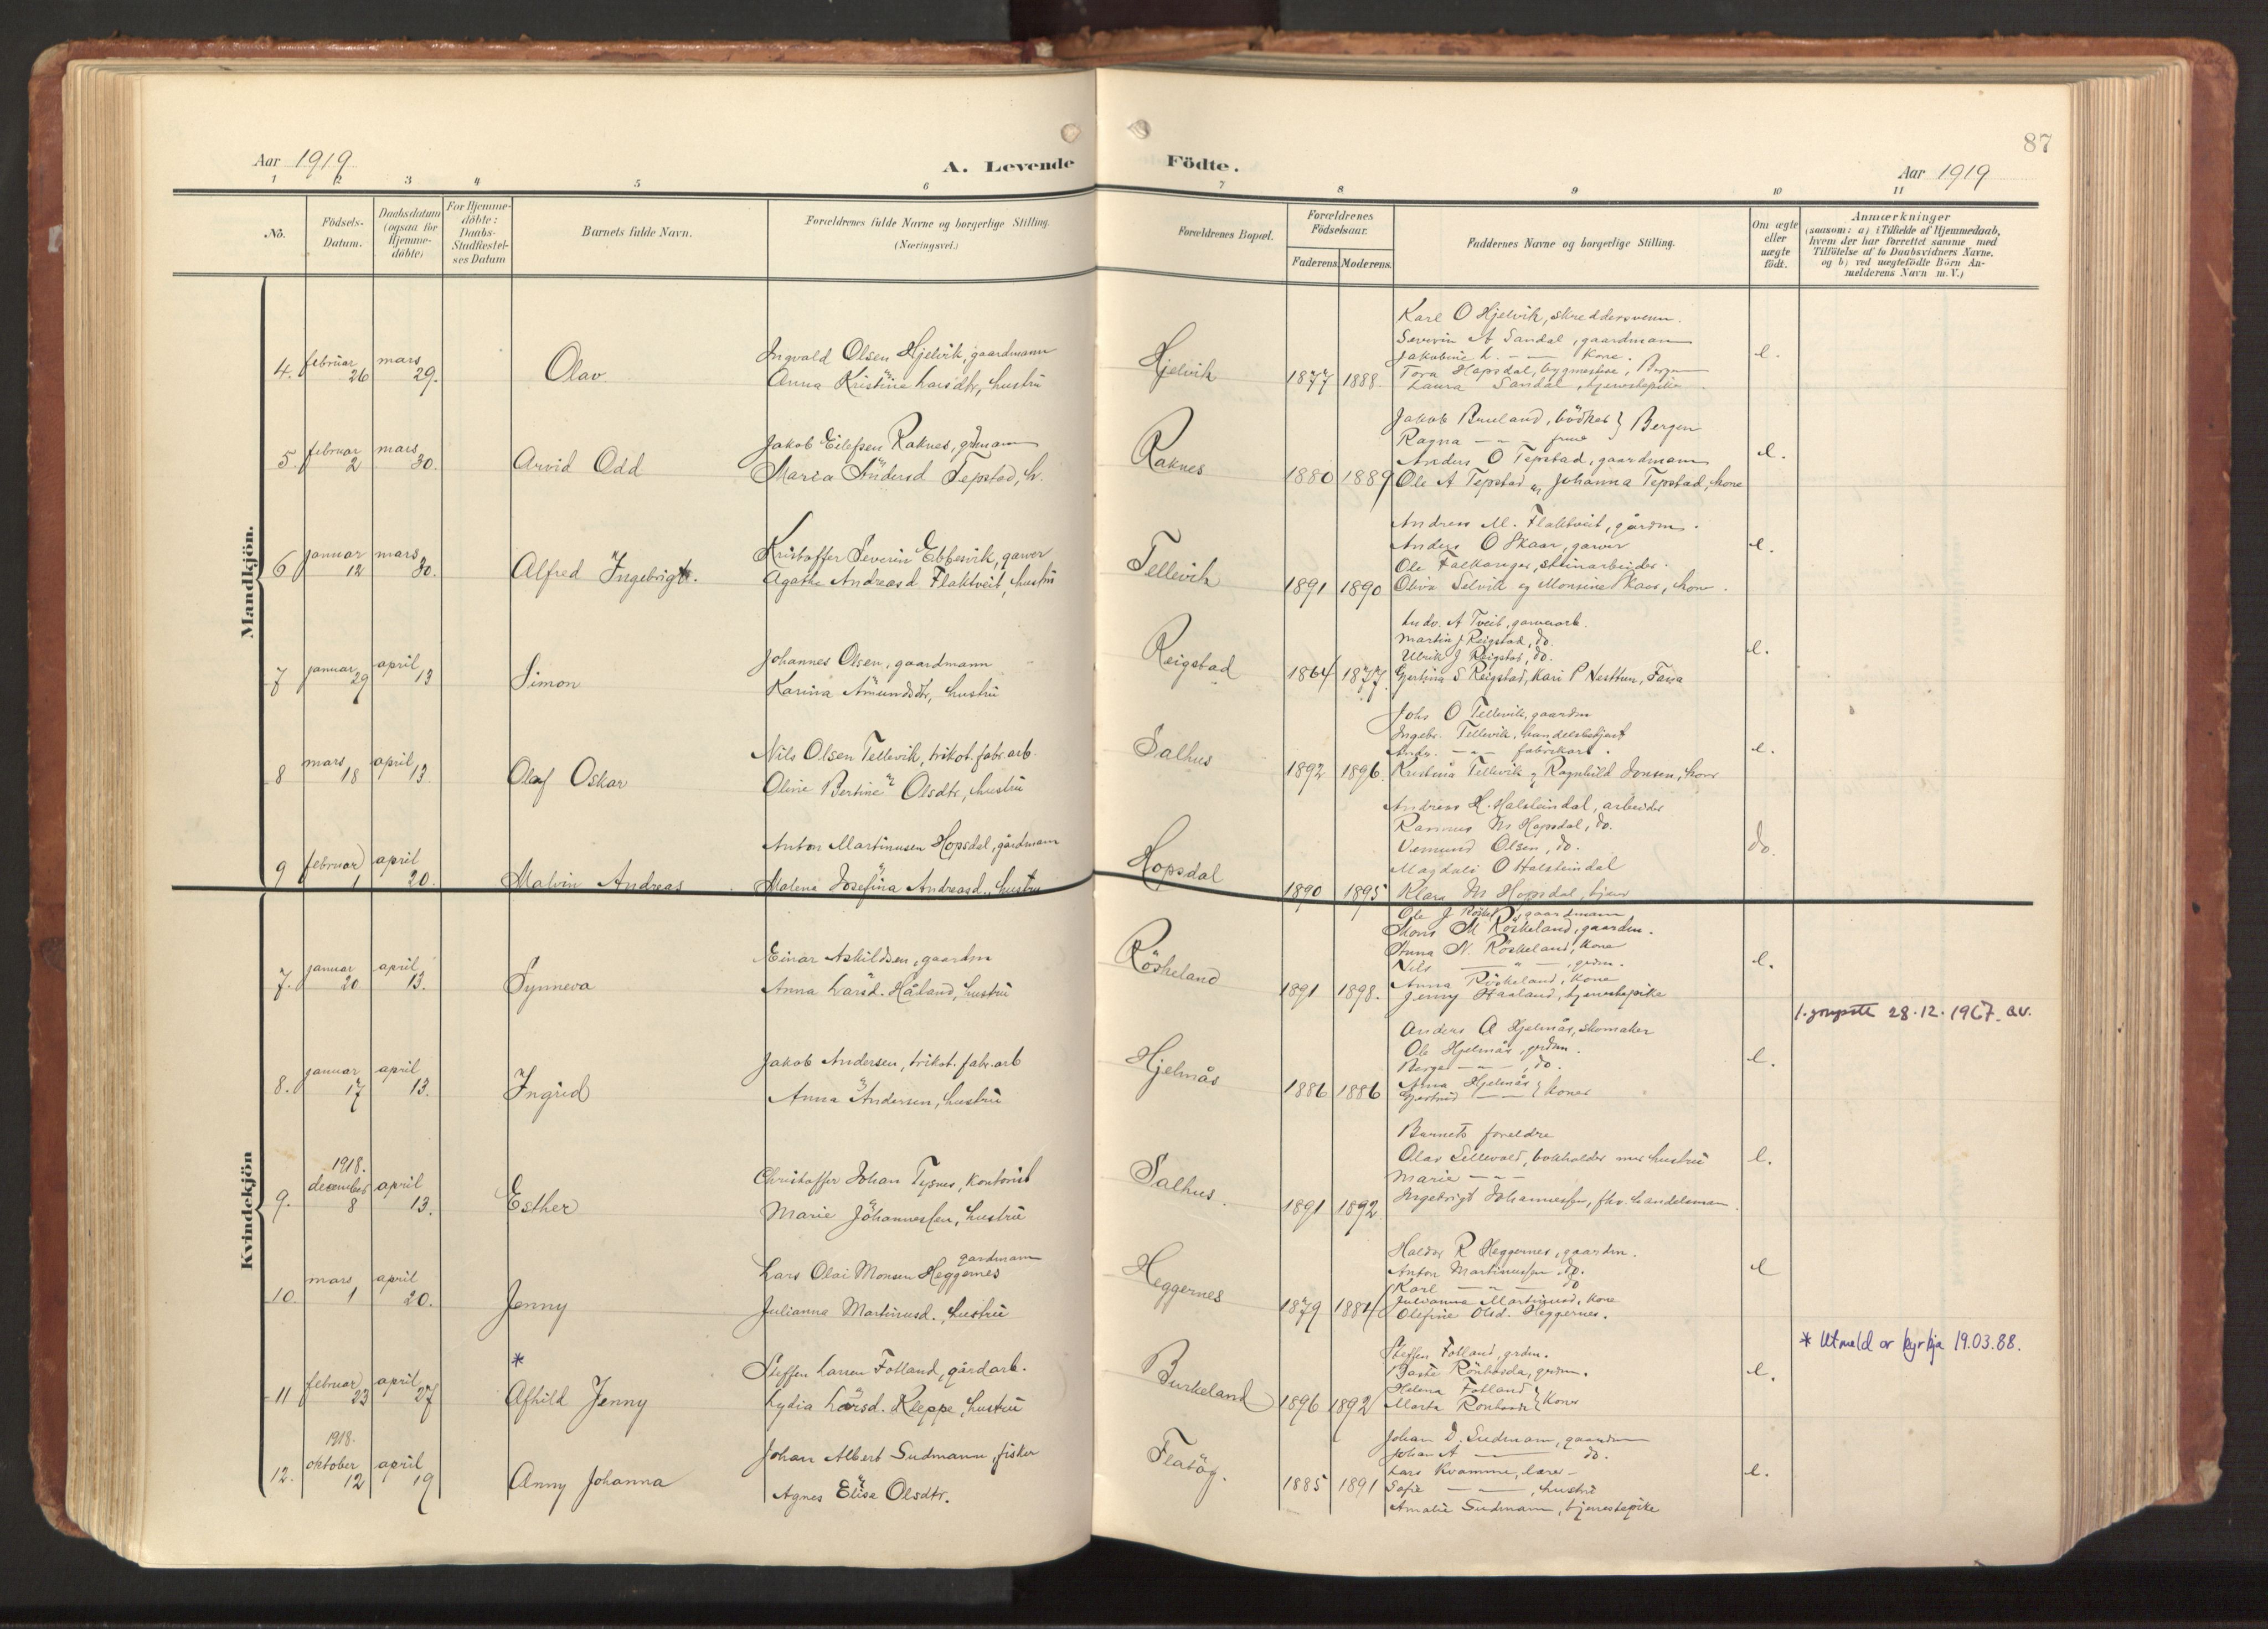 87
Aar 1919
A. Levende Födte.
Aar 1919
1 2 3 4 5 6 7 8 9 10 11
No.
Födsels-
Datum.
Daabsdatum
(ogsaa for
Hjemme-
döbte)
For Hjemme-
döbte:
Daabs-
Stadfæstel-
ses Datum
Barnets fulde Navn.
Forældrenes fulde Navne og borgerlige Stilling.
(Næringsvei.)
Forældrenes Bopæl.
Forældrenes
Födselsaar.
Faderens Moderens.
Faddernes Navne og borgerlige Stilling.
Om ægte
eller
uægte
födt.
Anmærkninger
(saasom: a) i Tilfælde af Hjemmedaab,
hvem der har forrettet samme med
Tilföielse af to Daabsvidners Navne.
og b) ved uægtefödte Börn An-
melderens Navn m. V.)
Mandkjön.
4. februar 26 mars 29.
Olav
Ingvald Olsen Hjelvik, gaardmann
Anna Kristine Larsdtr, hustru
Hjelvik
1877 1888.
Karl O Hjelvik, skreddersvenn.
Severin A Sandal, gaardman
Jakobine L. - - - kone.
Tora Hopsdal, Bergen
Laura Sandal, tjenestepike
e.
5. februar 2 mars 30.
Arvid Odd
Jakob Eilefsen Raknes, grdmann
Maria Andersd Tepstad, h.
Raknes
1880 1889
Jakob Buuland, bödker } Bergen
Ragna - " - frue
Anders O Tepstad, gaardmann
Ole A Tepstad og Johanna Tepstad, kone
e.
6 januar 12 mars 30.
Alfred Ingebrigt.
Kristoffer Severin Ebbesvik, garver
Agathe Andreasd Flaktveit, hustru
Tellevik
1891 1890
Andreas M. Flaktveit, gårdm.
Anders O Skaar, garver
Ole Falkanger, steinarbeider.
Oliva Selvik og Monsine Skaar, kone.
e.
7 januar 29 april 13
Simon
Johannes Olsen, gaardmann
Karina Amundsdtr, hustru
Reigstad
1864 1877.
Ludv. A Tveit, garverarb.
Martin J Reigstad, do.
Ulrik J Reigstad, do.
Gjertina S Reigstad, Kari P Nesttun, Fana
e.
8 mars 18 april 13.
Olaf Oskar
Nils Olsen Tellevik, trikot. fabr. arb.
Oline Bertine Olsdtr, hustru
Salhus
1892 1896.
Johs O Tellevik, gaardm
Ingebr. Tellevik, handelsbetjent
Andr. - " - fabrikarb.
Kristina Tellevik og Ragnhild Jonsen, kone
e.
9 februar 1 april 20.
Malvin Andreas
Anton Martinusen Hopsdal, gårdmann
Malene Josefina Andreasd., hustru
Hopsdal
1890 1895
Andreas H. Halsteindal, arbeider
Rasmus M Hopsdal, do.
Vemund Olsen, do.
Magdali O Halsteindal
Klara M Hopsdal, tjener
do.
Kvindekjön
7. januar 20 april 13.
Synneva
Einar Askildsen, gaardm
Anna Larsd. Håland, hustru
Röskeland
1891 1898.
Ole J Röskel., gaardmann
Mons M Röskeland, gaardm.
Anna N. Röskeland, kone
Nils - " -, grdm.
Anna Röskeland, kone
Jenny Haaland, tjenestepike
e.
28.12.1967. av.
8. januar 17 april 13.
Ingrid
Jakob Andersen, trikot. fabr. arb
Anna Andersen, hustru
Hjelmås
1886 1886
Anders A Hjelmås, skomaker
Ole Hjelmås, grdm.
Berge - " -, do.
Anna Hjelmås } koner
Gjertrud - " -
e.
9. 1918. december 8 april 13.
Esther
Christoffer Johan Tysnes, kontorist
Marie Johannessen, hustru
Salhus.
1891 1892
Barnets foreldre
Olav Lillevold, bokholder med hustru
Marie - " -
Ingebrigt Johannessen, fhv. handelsman.
e.
10. mars 1 april 20.
Jenny
Lars Olai Monsen Heggernes gardmann
Julianna Martinusd., hustru
Heggernes
1879 1884
Haldor R Heggernes, gaardm.
Anton Martinussen do.
Karl - " - do
Julianna Martinusd, kone
Olefine Olsd. Heggernes.
e
11 februar 23 april 27
*
Afhild Jenny
Steffen Larsen Fotland, gårdarb.
Lydia Larsd. Kleppe, hustru
Burkeland
1896 1892
Steffen Fotland, grdm.
Helena Fotland } koner
Marta
e.
* Utmeld or kyrkja 19.03.88.
12. 1918. oktober 12 april 19
Anny Johanna
Johan Albert Sudmann, fisker
Agnes Elisa Olsdtr.
Flatöy.
1885 1891
Johan D. Sudmann, gaardm
Johan A - do.
Lars Kvamme, lærer
Sofie - " -, hustru
Amalie Sudmann, tjenestepike
e.